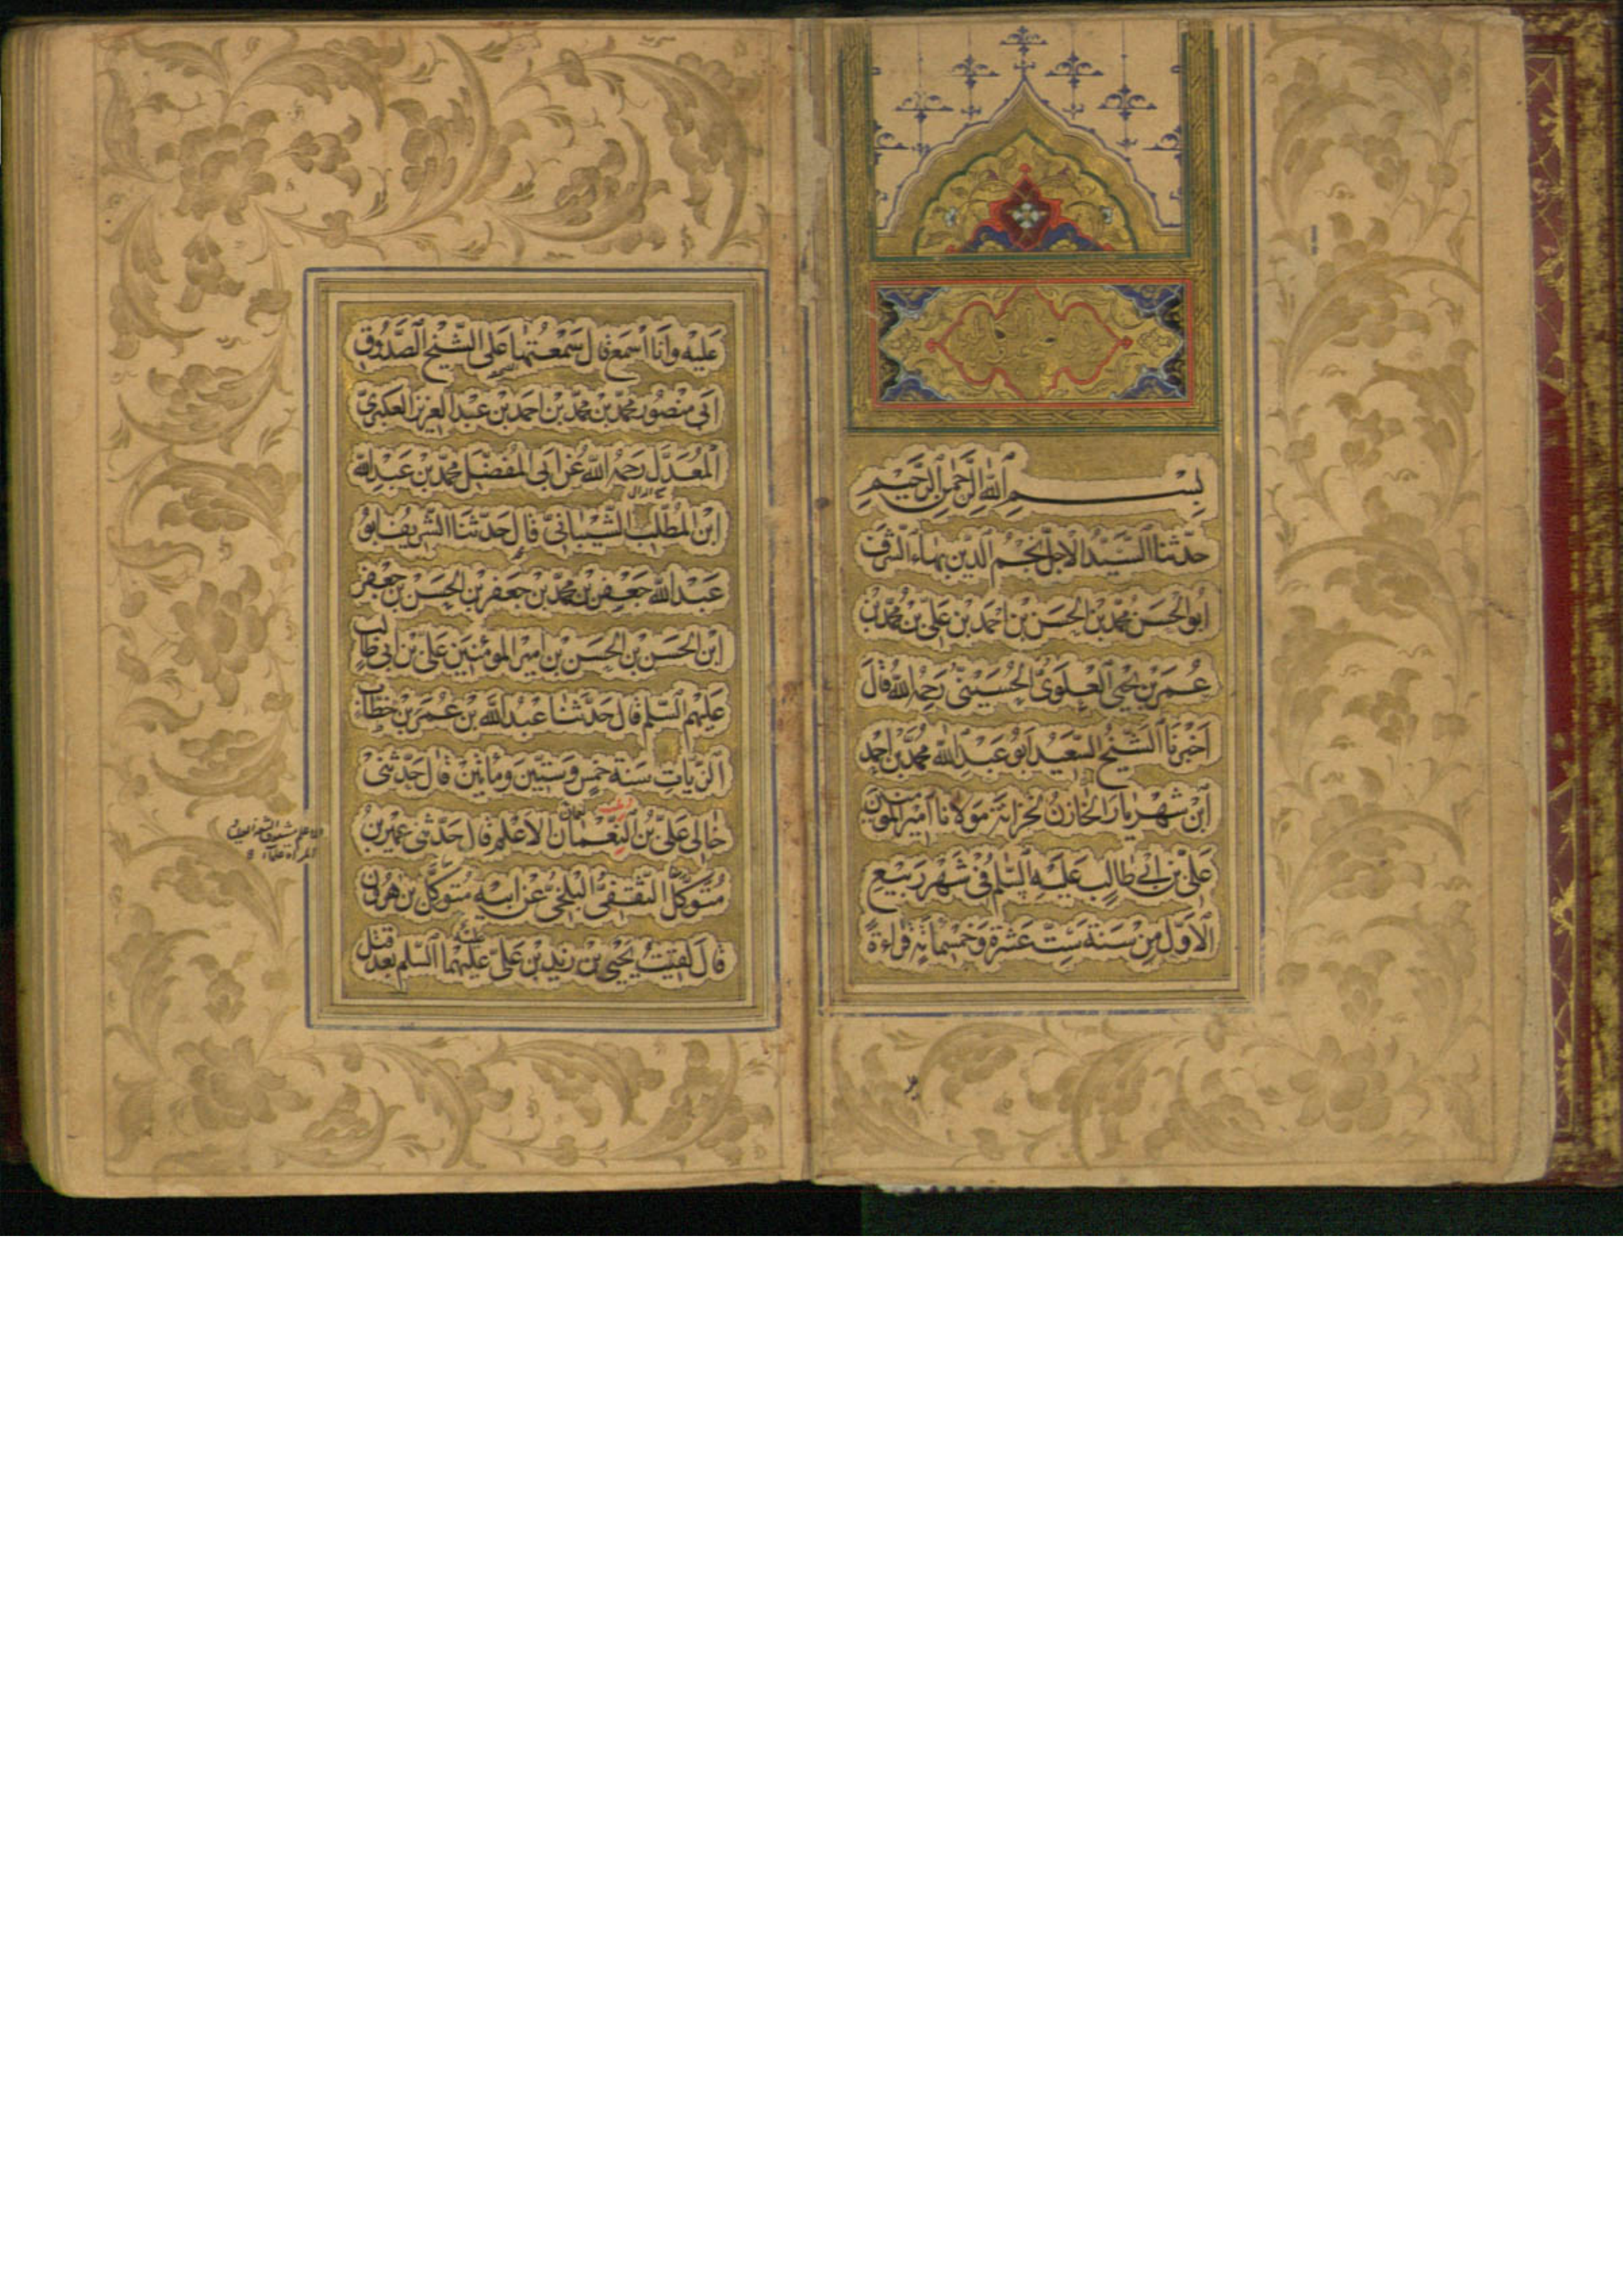 بِسْمِ ٱللّٰهِ ٱلرَّحْمٰنِ ٱلرَّحِيمِ
حَدَّثَنَا السَّيِّدُ الْاَجَلُّ نَجْمُ الدّينِ بَهَاءُ الشَّرَفِ
اَبُو الْحَسَنِ مُحَمَّدُ بْنُ الْحَسَنِ بْنِ اَحْمَدَ بْنِ عَلِيِّ بْنِ مُحَمَّدِ بْنِ
عُمَرَ بْنِ يَحْيَى الْعَلَوِىُّ الْحُسَيْنِىُّ رَحِمَهُ اللّٰهُ قَالَ
اَخْبَرَنَا الشَّيْخُ السَّعِيدُ اَبُو عَبْدِ اللّٰهِ مُحَمَّدُ بْنُ اَحْمَدَ
ابْنِ شَهْرِيَارَ الْخَازِنُ لِخَزَانَةِ مَوْلَانَا اَمِيرِ الْمُؤْمِنِينَ
عَلِيِّ بْنِ اَبِي طَالِبٍ عَلَيْهِ السَّلٰمُ فِى شَهْرِ رَبِيعِ
الْاَوَّلِ مِنْ سَنَةِ سِتَّ عَشْرَةَ وَخَمْسِمِائَةٍ قِرَاءَةً
عَلَيْهِ وَاَنَا اَسْمَعُ قَالَ سَمِعْتُهَا عَلَى الشَّيْخِ الصَّدُوقِ
اَبِى مَنْصُورٍ مُحَمَّدِ بْنِ مُحَمَّدِ بْنِ اَحْمَدَ بْنِ عَبْدِ الْعَزِيزِ الْعُكْبَرِىِّ
الْمُعَدَّلِ رَحِمَهُ اللّٰهُ عَنْ اَبِى الْمُفَضَّلِ مُحَمَّدِ بْنِ عَبْدِ اللّٰهِ
ابْنِ الْمُطَّلِبِ الشَّيْبَانِىِّ قَالَ حَدَّثَنَا الشَّرِيفُ اَبُو
عَبْدِ اللّٰهِ جَعْفَرُ بْنُ مُحَمَّدِ بْنِ جَعْفَرِ بْنِ الْحَسَنِ بْنِ جَعْفَرِ
ابْنِ الْحَسَنِ بْنِ الْحَسَنِ بْنِ اَمِيرِ الْمُؤْمِنِينَ عَلِىِّ بْنِ اَبِى طَالِبٍ
عَلَيْهِمُ السَّلٰمُ قَالَ حَدَّثَنَا عَبْدُ اللّٰهِ بْنُ عُمَرَ بْنِ خَطَّابٍ
الزَّيَّاتُ سَنَةَ خَمْسٍ وَسِتِّينَ وَمِائَتَيْنِ قَالَ حَدَّثَنِى
خَالِى عَلِىُّ بْنُ النُّعْمَانِ الْاَعْلَمُ قَالَ حَدَّثَنِى عُمَيْرُ بْنُ
مُتَوَكِّلٍ الثَّقَفِىُّ الْبَلْخِىُّ عَنْ اَبِيهِ مُتَوَكِّلِ بْنِ هٰرُونَ
قَالَ لَقِيتُ يَحْيَى بْنَ زَيْدِ بْنِ عَلِىٍّ عَلَيْهِمَا السَّلٰمُ بَعْدَ قَتْلِ